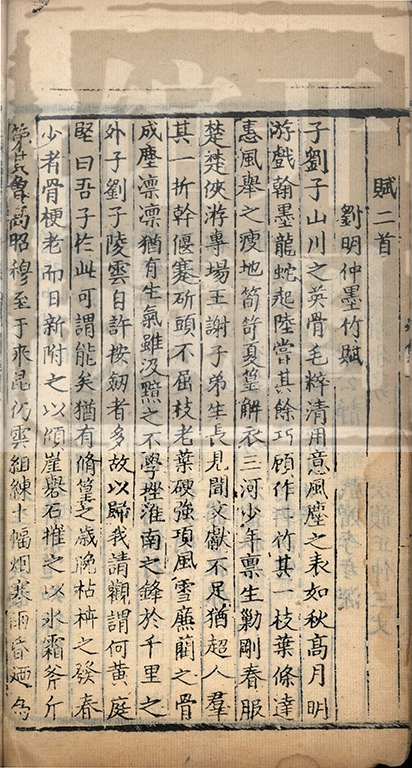 賦二首
劉明仲墨竹賦
子劉子山川之英骨毛粹清用意風塵之表如秋高月明
游戲翰墨龍蛇起陸嘗其餘巧顧作二竹其一枝葉條達
惠風舉之瘦地笱笴夏篁解衣三河少年禀生勁剛春服
楚楚俠游專場王謝子弟生長見聞文獻不足猶超人羣
其一折幹偃蹇斫頭不屈枝老葉硬強項風雪廉藺之骨
成塵凛凛猶有生氣雖汲黯之不學挫淮南之鋒於千里之
外子劉子陵雲自許按劒者多故以歸我請觀謂何黃庭
堅曰吾子於此可謂能矣猶有脩篁之歲晚枯枿之發春
少者骨梗老而日新附之以傾崖礜石摧之以冰霜斧斤
第其曾高昭穆至于來昆仍雲組練十幅烟寒雨昏迺為